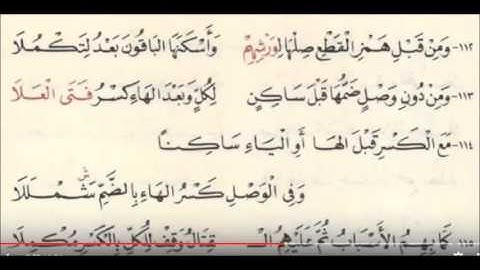 ١١٢- وَمِنْ قَبْلِ هَمْزِ الْقَطْعِ صِلْهَا لِوَرْشِهِمْ وَأَسْكَنَهَا الْبَاقُونَ بَعْدُ لِتَكْمُلَا
١١٣- وَمِنْ دُونِ وَصْلٍ ضُمَّهَا قَبْلَ سَاكِنٍ لِكُلٍّ وَبَعْدَ الْهَاءِ كَسْرُ فَتَى الْعَلَا
١١٤- مَعَ الْكَسْرِ قَبْلَ الْهَا أَوِ الْيَاءِ سَاكِنًا
وَفِي الْوَصْلِ كَسْرُ الْهَاءِ بِالضَّمِّ شَمْلَلَا
١١٥- كَمَا بِهِمُ الْأَسْبَابُ ثُمَّ عَلَيْهِمُ الْـ قِتَالُ وَقِفْ لِلْكُلِّ بِالْكَسْرِ مُكْمِلَا